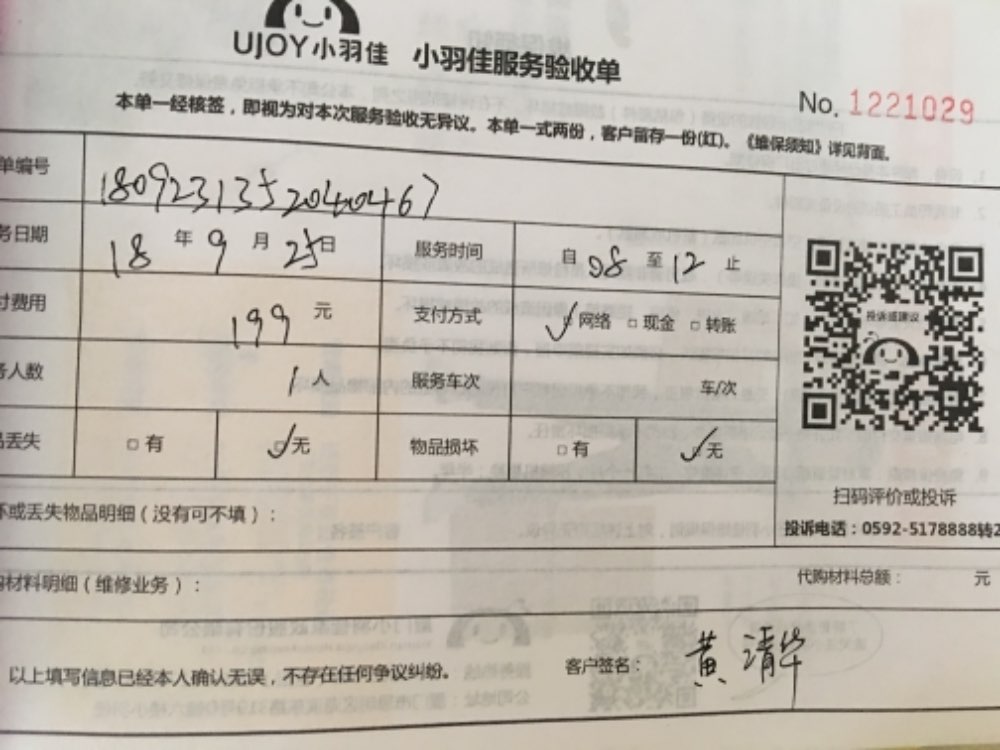 UJOY小羽佳 小羽佳服务验收单
No. 1221029
本单一经核签，即视为对本次服务验收无异议。本单一式两份，客户留存一份(红)。《维保须知》详见背面。
单编号 18092313520404467
务日期 18 年 9 月 25 日 服务时间 自 08 至 12 止
付费用 199 元 支付方式 ☑网络 □现金 □转账
务人数 1 人 服务车次 车/次
品丢失 □有 ☑无 物品损坏 □有 ☑无
投诉或建议
扫码评价或投诉
投诉电话：0592-5178888转2
坏或丢失物品明细（没有可不填）：
购材料明细（维修业务）： 代购材料总额： 元
以上填写信息已经本人确认无误，不存在任何争议纠纷。 客户签名： 黄清华